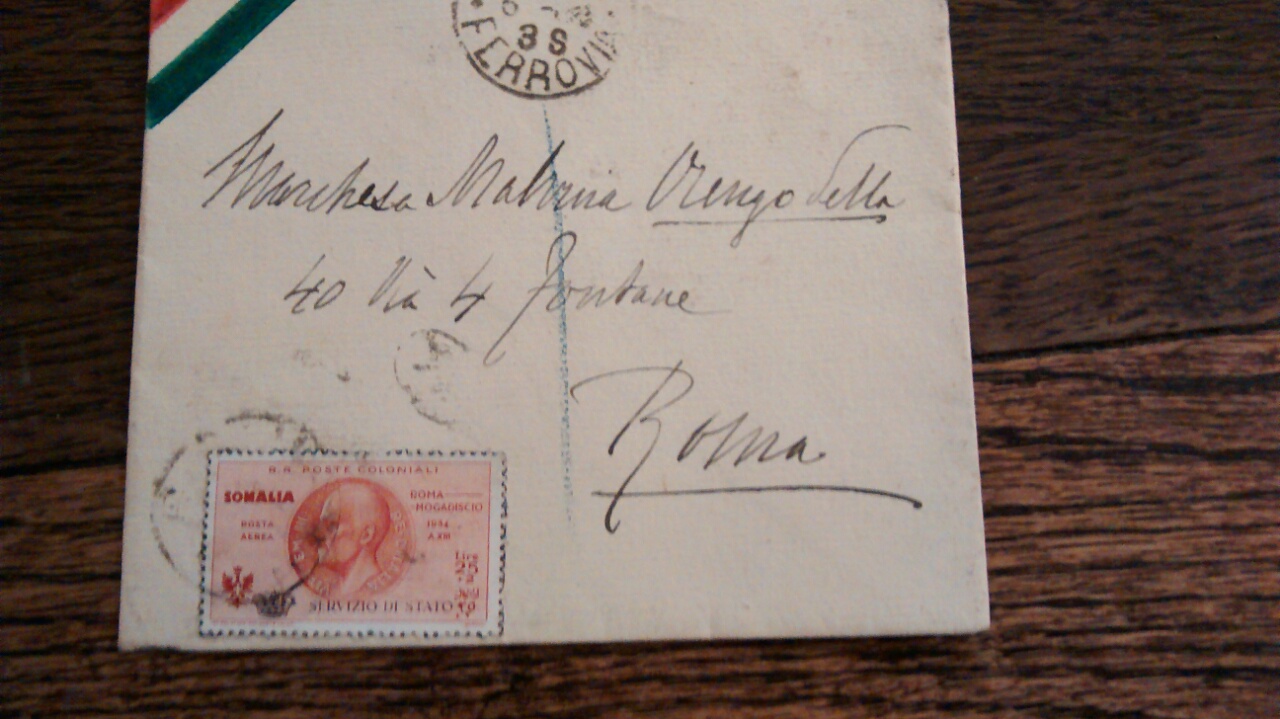 3 S
FERROVIA
Marchesa Malvina Orengo della
40 Via 4 Fontane
Roma
R.R. POSTE COLONIALI
SOMALIA
ROMA
MOGADISCIO
POSTA
AEREA
1934
A.XIII
SERVIZIO DI STATO